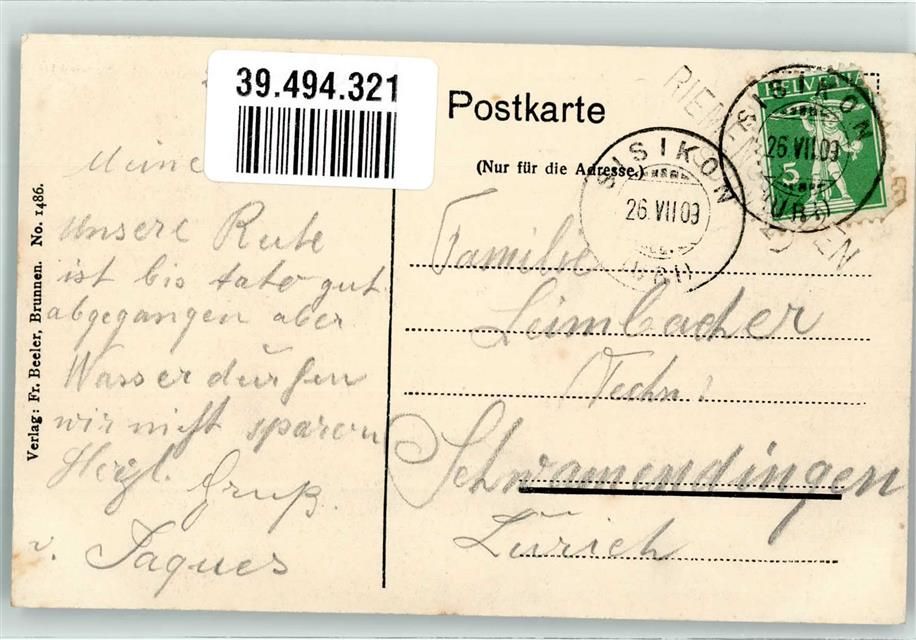 39.494.321
Postkarte
(Nur für die Adresse.)
HELVETIA
5
SISIKON
26.VII.09
(URI)
SISIKON
26.VII.09
(URI)
RIEMENSTALDEN
Verlag: Fr. Beeler, Brunnen. No. 1486.
Meine
unsere Rute
ist bis dato gut
abgegangen aber
Wasser dürfen
wir nicht sparen
Herzl. Gruß.
v. Jaques
Familie
Leimbacher
Techn.
Schwamendingen
Zürich